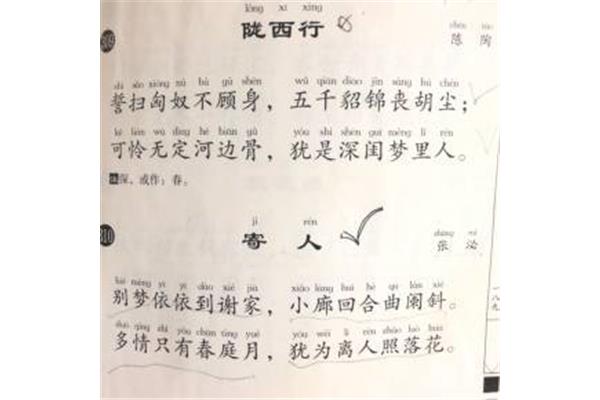 lǒng xī xíng
309 陇西行
chén táo
陈 陶
shì sǎo xiōng nú bú gù shēn wǔ qiān diāo jǐn sàng hú chén
誓扫匈奴不顾身，五千貂锦丧胡尘；
kě lián wú dìng hé biān gǔ yóu shì shēn guī mèng lǐ rén
可怜无定河边骨，犹是深闺梦里人。
深，或作：春。
jì rén
310 寄 人
zhāng mì
张 泌
bié mèng yī yī dào xiè jiā xiǎo láng huí hé qū lán xié
别梦依依到谢家，小廊回合曲阑斜。
duō qíng zhǐ yǒu chūn tíng yuè yóu wèi lí rén zhào luò huā
多情只有春庭月，犹为离人照落花。
一八九